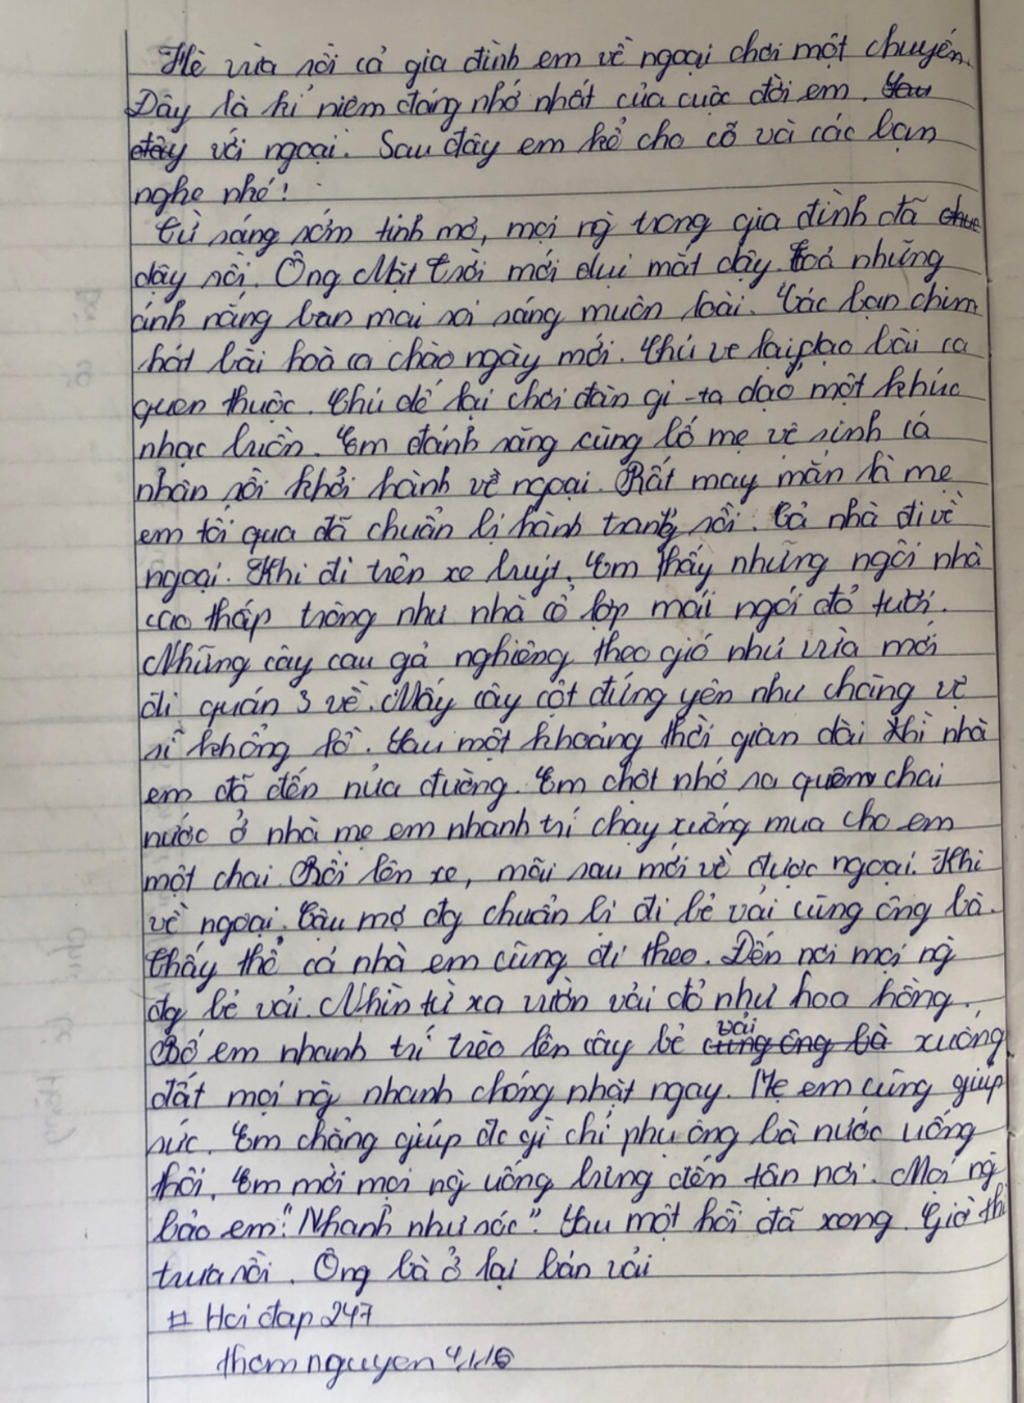 Hè vừa rồi cả gia đình em về ngoại chơi một chuyến.
Đây là kỉ niệm đáng nhớ nhất của cuộc đời em. Sau
đây với ngoại. Sau đây em kể cho cô và các bạn
nghe nhé!
Từ sáng sớm tinh mơ, mọi ng` trong gia đình đã
dậy rồi. Ông Mặt Trời mới dụi mắt dậy. Toả những
ánh nắng ban mai soi sáng muôn loài. Các bạn chim
hát bài hoà ca chào ngày mới. Chú ve lại dạo bài ca
quen thuộc. Chú dế lại chơi đàn gi-ta dạo một khúc
nhạc buồn. Em đánh răng cùng bố mẹ vệ sinh cá
nhân rồi khởi hành về ngoại. Rất may mắn là mẹ
em tối qua đã chuẩn bị hành trang rồi. Cả nhà đi về
ngoại. Khi đi trên xe buýt. Em thấy những ngôi nhà
cao thấp trông như nhà cổ lợp mái ngói đỏ tươi.
Những cây cau gả nghiêng theo gió như vừa mới
đi quán 3 về. Mấy cây cột đứng yên như chàng vệ
sĩ khổng lồ. Sau một khoảng thời gian dài thì nhà
em đã đến nửa đường. Em chợt nhớ ra quên chai
nước ở nhà mẹ em nhanh trí chạy xuống mua cho em
một chai. Rồi lên xe, mãi sau mới về được ngoại. Khi
về ngoại. Cậu mợ đg chuẩn bị đi bẻ vải cùng ông bà.
Thấy thế, cả nhà em cũng đi theo. Đến nơi mọi ng`
đg bẻ vải. Nhìn từ xa vườn vải đỏ như hoa hồng.
Bố em nhanh trí trèo lên cây bẻ vải cùng ông bà xuống
đất mọi ng` nhanh chóng nhặt ngay. Mẹ em cũng giúp
sức. Em chẳng giúp đc gì chỉ phụ ông bà nước uống
thôi. Em mời mọi ng` uống bưng đến tận nơi. Mọi ng`
bảo em: "Nhanh như sóc". Sau một hồi đã xong. Giờ thì
trưa rồi. Ông bà ở lại bán vải
# Hoi đap 247
thomnguyen